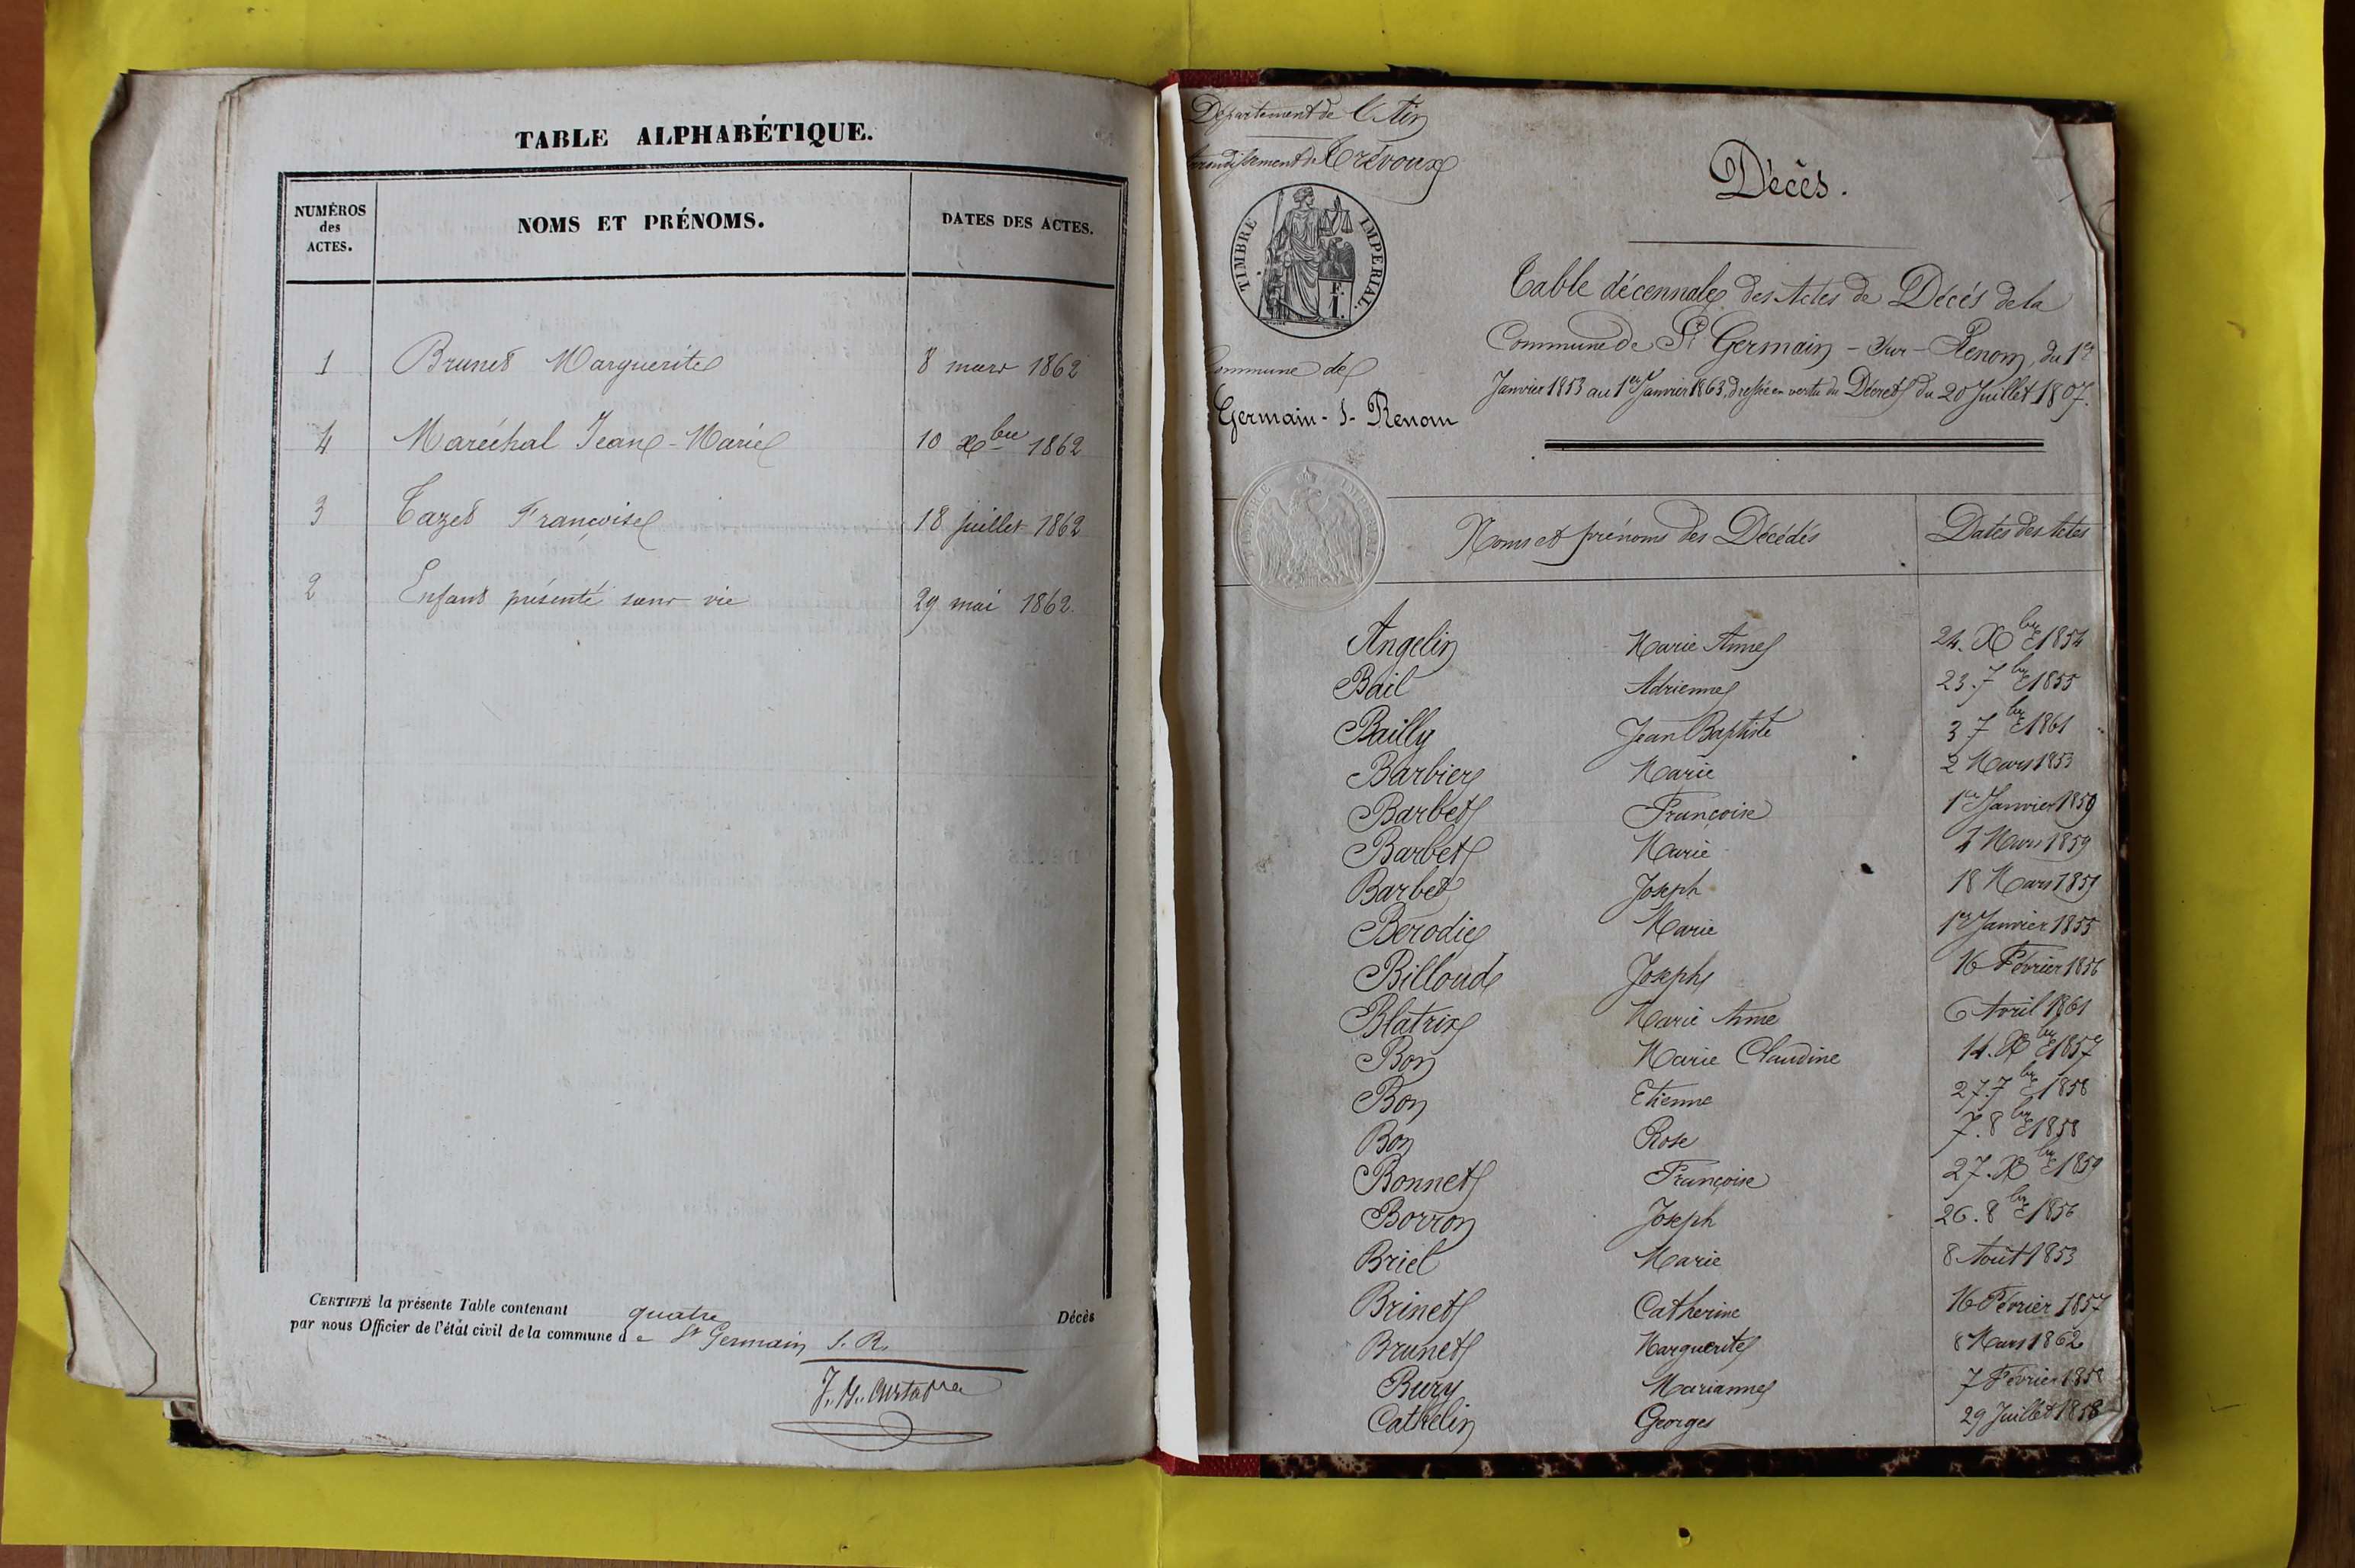 TABLE ALPHABÉTIQUE.
NUMÉROS des ACTES. NOMS ET PRÉNOMS. DATES DES ACTES.
1 Brunet Marguerite 8 mars 1862
4 Maréchal Jean-Marie 10 Xbre 1862
3 Cazet Françoise 18 juillet 1862
2 Enfant présenté sans vie 29 mai 1862.
CERTIFIÉ la présente Table contenant quatre Décès
par nous Officier de l'état civil de la commune de St Germain S. R.
Département de l'Ain
Arrondissement de Trévoux
TIMBRE IMPERIAL.
F.
1.
Commune de
Germain-s-Renom
TIMBRE IMPERIAL
Décès.
Table décennale des Actes de Décès de la
Commune de St Germain-sur-Renom, du 1er
Janvier 1853 au 1er Janvier 1863, dressée en vertu du Décret du 20 Juillet 1807.
Noms et prénoms des Décédés Dates des Actes
Angelin Marie Anne 24. Xbre 1854
Bail Adrienne 23. 7bre 1855
Bailly Jean Baptiste 3 7bre 1861
Barbier Marie 2 Mars 1853
Barbet Françoise 1er Janvier 1859
Barbet Marie 2 Mars 1859
Barbet Joseph 18 Mars 1859
Berodie Marie 1er Janvier 1855
Billoud Joseph 16 Février 1856
Blatrix Marie Anne 6 Avril 1861
Bon Marie Claudine 14. Xbre 1857
Bon Etienne 27. 7bre 1858
Bon Rose 7. 8bre 1858
Bonnet Françoise 27. Xbre 1859
Borron Joseph 26. 8bre 1856
Briel Marie 8 Août 1853
Brinet Catherine 16 Février 1857
Brunet Marguerite 8 Mars 1862
Bury Marianne 7 Février 1858
Cathelin Georges 29 Juillet 1858